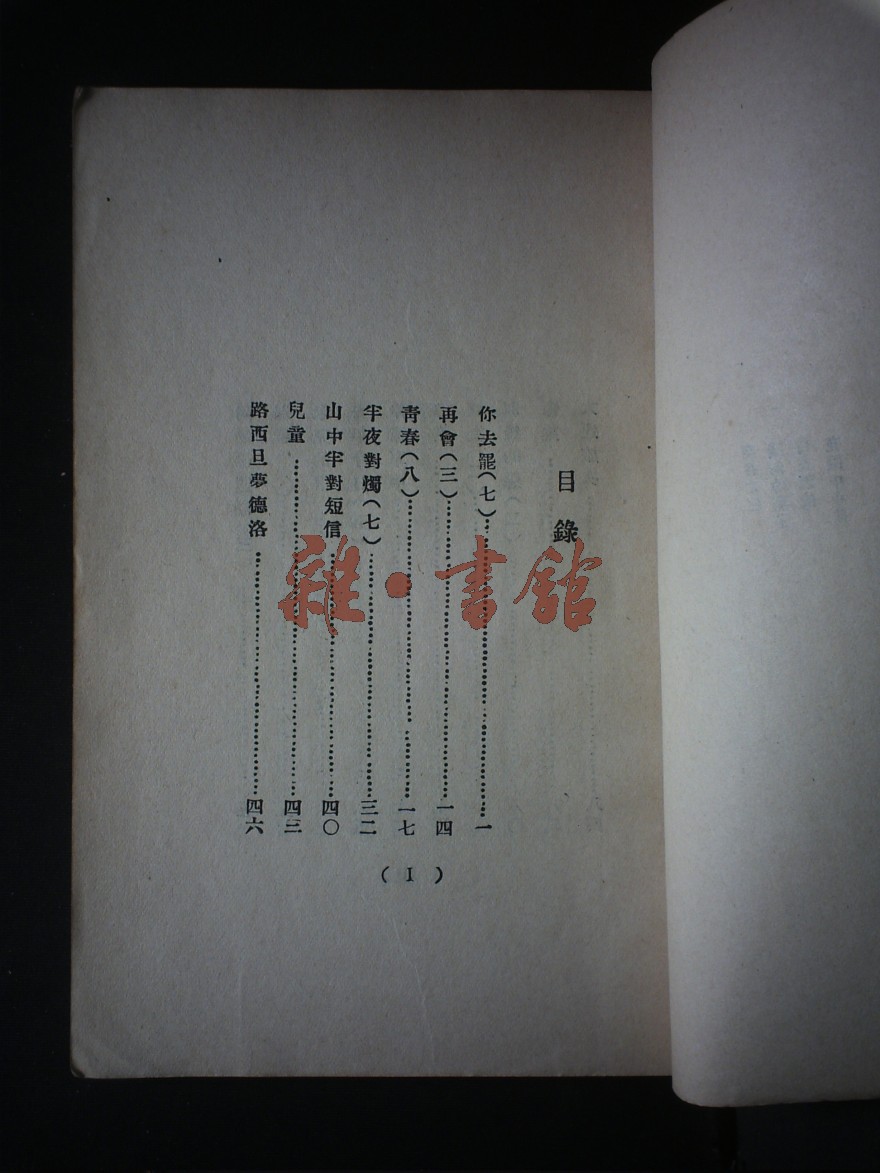 目錄
你去罷(七)……一
再會(三)……一四
青春(八)……一七
半夜對燭(七)……三二
山中半對短信……四〇
兒童……四三
路西旦夢德洛……四六
(I)
雜·書館